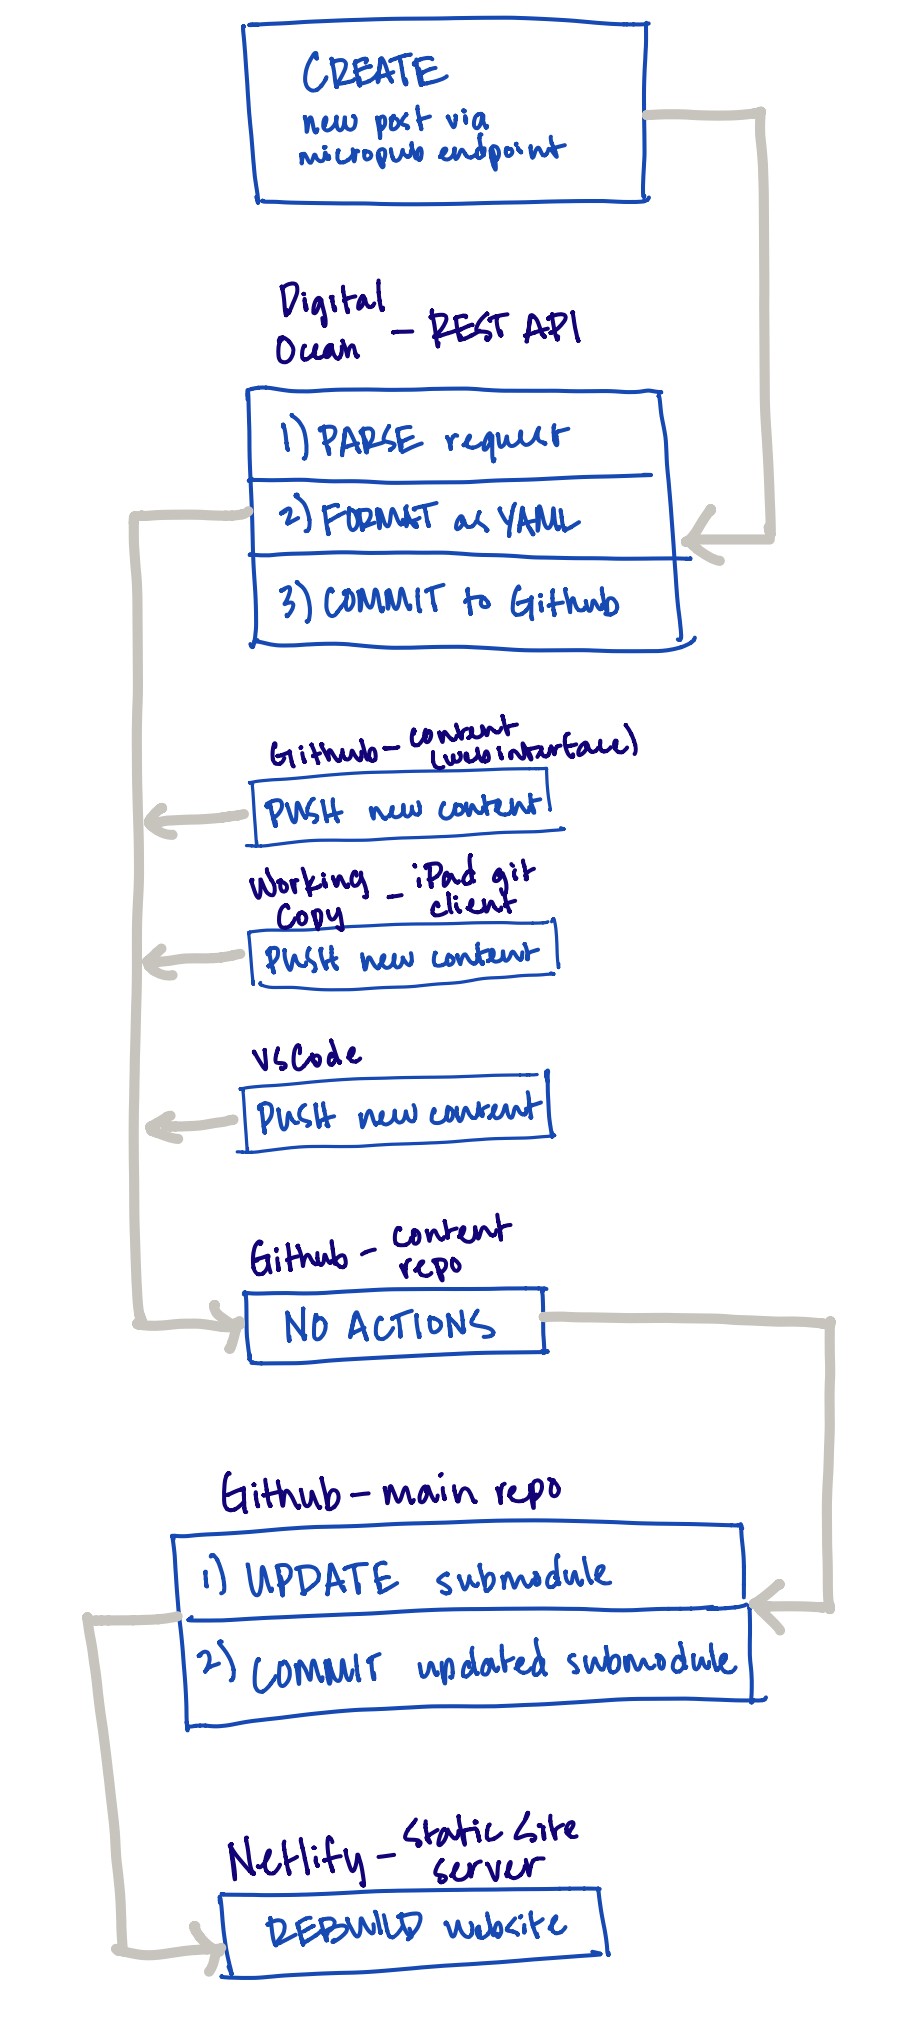 CREATE
new post via
micropub endpoint
Digital
Ocean – REST API
1) PARSE request
2) FORMAT as YAML
3) COMMIT to Github
Github – content
(web interface)
PUSH new content
Working – iPad git
Copy client
PUSH new content
VSCode
PUSH new content
Github – content
repo
NO ACTIONS
Github – main repo
1) UPDATE submodule
2) COMMIT updated submodule
Netlify – Static Site
server
REBUILD website